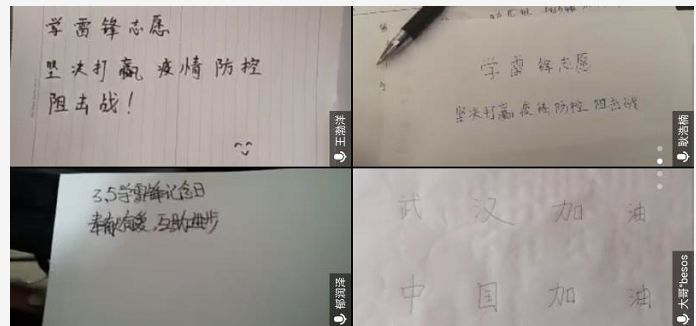 学雷锋志愿
坚决打赢疫情防控
阻击战！
王渤洋
学雷锋志愿
坚决打赢疫情防控阻击战
耿浩楠
3.5学雷锋记念日
奉献友爱,互助进步
郁润泽
武汉加油
中国加油
大哥*besos